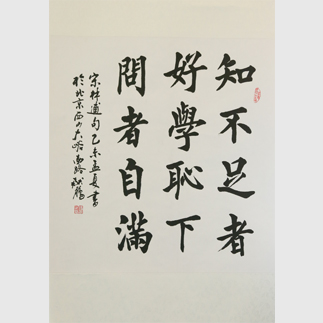 知不足者
好學恥下
問者自滿
宋林逋句乙未孟夏書
於北京西山大